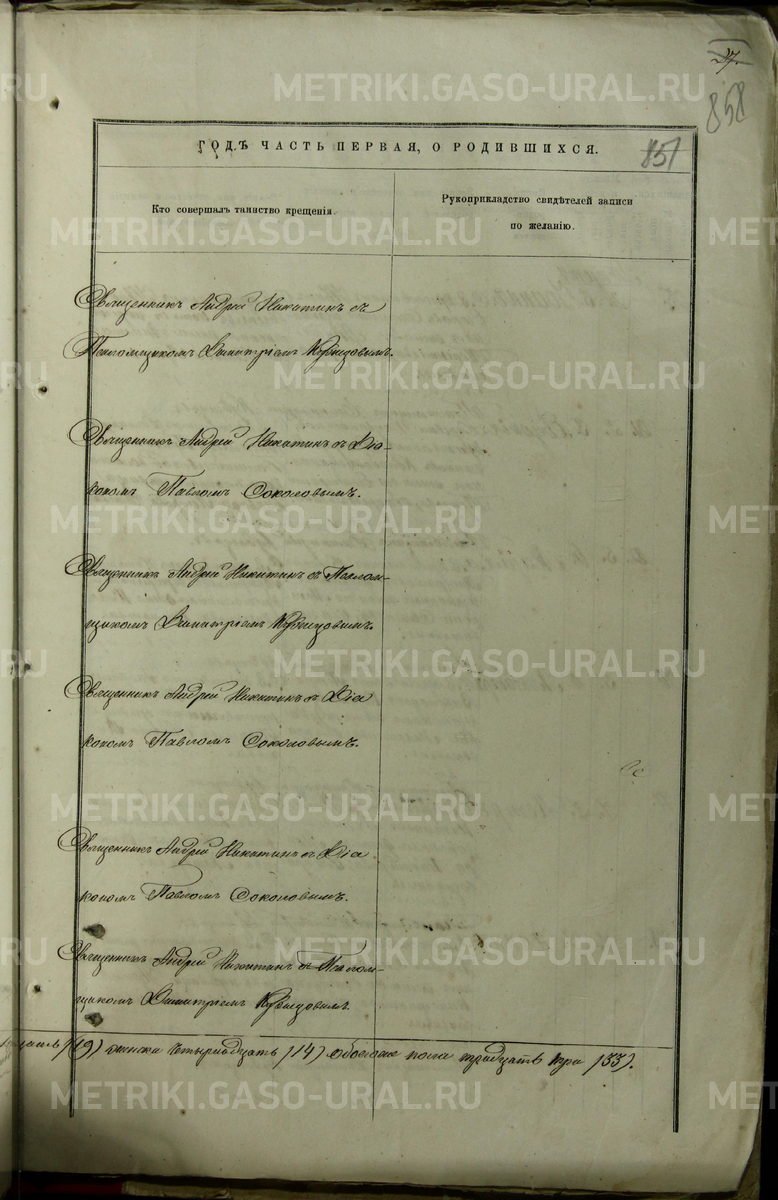 37.
858
ГОДЪ ЧАСТЬ ПЕРВАЯ, О РОДИВШИХСЯ.
851
Кто совершалъ таинство крещенія.
Рукоприкладство свидѣтелей записи
по желанію.
Священникъ Андрей Никитинъ съ
Псаломщикомъ Димитріемъ
Священникъ Андрей Никитинъ съ Діа-
кономъ Павломъ Соколовымъ.
Священникъ Андрей Никитинъ съ Псалом-
щикомъ Димитріемъ
Священникъ Андрей Никитинъ съ Діа
кономъ Павломъ Соколовымъ.
Священникъ Андрей Никитинъ съ Діа
кономъ Павломъ Соколовымъ.
Священникъ Андрей Никитинъ съ Псалом-
щикомъ Димитріемъ
(19) женска четырнадцать (14) обоего пола тридцать три (33).
METRIKI.GASO-URAL.RU